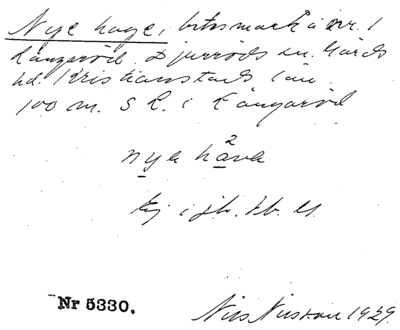 Nye hage, betesmark å nr. 1
Långaröd. Djurröds sn. Gärds
hd. Kristianstads län
100 m. S k. i Långaröd
nya hava
2
Ej i jb.
Nr 5330.
Nils Nilsson 1929.